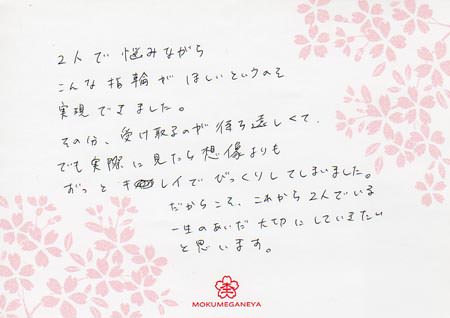 2人で悩みながら
こんな指輪がほしいというのを
実現できました。
その分、受け取るのが待ち遠しくて、
でも実際に見たら想像よりも
ずっとキレイでびっくりしてしまいました。
だからこそ、これから2人でいる
一生のあいだ大切にしていきたい
と思います。
MOKUMEGANEYA